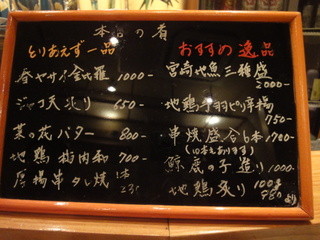 本日の肴
とりあえず一品
春ヤサイ金比羅 1000-
ジャコ天炙り 650-
菜の花バター 800-
地鶏梅肉和 700-
厚揚串タレ焼 1本
おすすめ逸品
宮崎地魚三種盛
2000-
地鶏手羽
750-
串焼盛合6本 1700-
鯨底の子造り 1000-
地鶏炙り 100g
980より